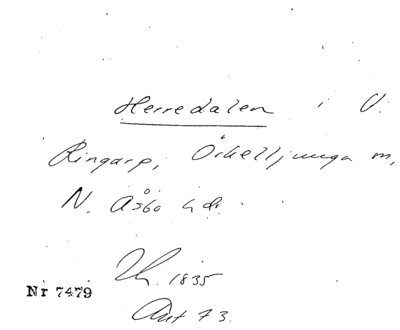 Herredalen i V.
Ringarp, Örkelljunga m,
N. Åsbo hd.
1835
Nr 7479
Akt 73.